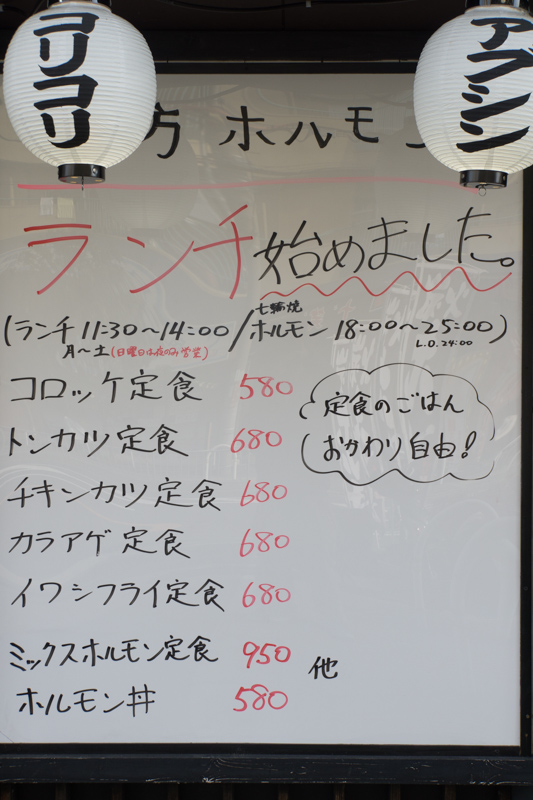 コリコリ
アブシン
方 ホルモン
ランチ始めました。
(ランチ 11:30〜14:00 / 七輪焼ホルモン 18:00〜25:00)
月〜土(日曜日は夜のみ営業) L.O.24:00
コロッケ定食 580
定食のごはん
おかわり自由!
トンカツ定食 680
チキンカツ定食 680
カラアゲ定食 680
イワシフライ定食 680
ミックスホルモン定食 950 他
ホルモン丼 580